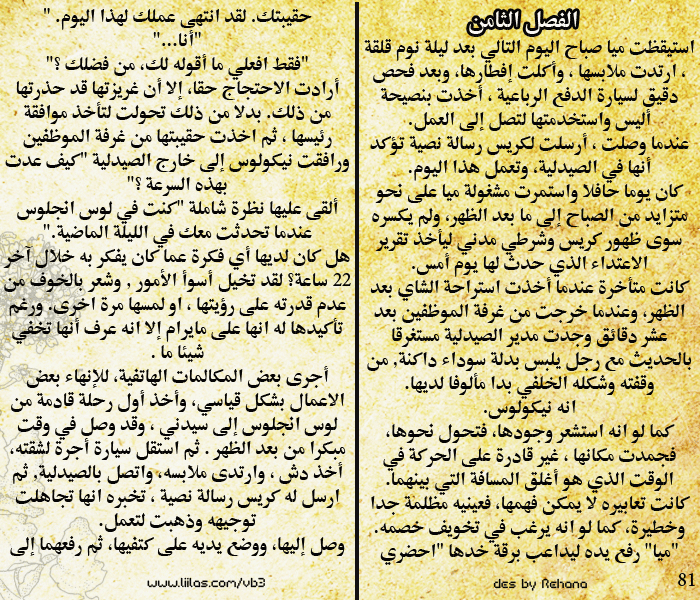 الفصل الثامن
استيقظت ميا صباح اليوم التالي بعد ليلة نوم قلقة
، ارتدت ملابسها ، وأكلت إفطارها، وبعد فحص
دقيق لسيارة الدفع الرباعية ، أخذت بنصيحة
أليس واستخدمتها لتصل إلى العمل.
عندما وصلت ، أرسلت لكريس رسالة نصية تؤكد
أنها في الصيدلية، وتعمل هذا اليوم.
كان يوما حافلا واستمرت مشغولة ميا على نحو
متزايد من الصباح إلى ما بعد الظهر، ولم يكسره
سوى ظهور كريس وشرطي مدني ليأخذ تقرير
الاعتداء الذي حدث لها يوم أمس.
كانت متأخرة عندما أخذت استراحة الشاي بعد
الظهر، وعندما خرجت من غرفة الموظفين بعد
عشر دقائق وجدت مدير الصيدلية مستغرقا
بالحديث مع رجل يلبس بدلة سوداء داكنة, من
وقفته وشكله الخلفي بدا مألوفا لديها.
انه نيكولوس.
كما لو انه استشعر وجودها، فتحول نحوها،
فجمدت مكانها ، غير قادرة على الحركة في
الوقت الذي هو أغلق المسافة التي بينهما.
كانت تعابيره لا يمكن فهمها، فعينيه مظلمة جدا
وخطيرة، كما لو انه يرغب في تخويف خصمه.
"ميا" رفع يده ليداعب برقة خدها "احضري
حقيبتك. لقد انتهى عملك لهذا اليوم. "
"أنا..."
"فقط افعلي ما أقوله لك، من فضلك ؟"
أرادت الاحتجاج حقا، إلا أن غريزتها قد حذرتها
من ذلك. بدلا من ذلك تحولت لتأخذ موافقة
رئيسها ، ثم اخذت حقيبتها من غرفة الموظفين
ورافقت نيكولوس إلى خارج الصيدلية "كيف عدت
بهذه السرعة ؟"
ألقى عليها نظرة شاملة "كنت في لوس انجلوس
عندما تحدثت معك في الليلة الماضية."
هل كان لديها أي فكرة عما كان يفكر به خلال آخر
22 ساعة؟ لقد تخيل أسوأ الأمور , وشعر بالخوف من
عدم قدرته على رؤيتها ، او لمسها مرة اخرى. ورغم
تأكيدها له انها على مايرام إلا انه عرف أنها تخفي
شيئا ما .
أجرى بعض المكالمات الهاتفية، للإنهاء بعض
الاعمال بشكل قياسي، وأخذ أول رحلة قادمة من
لوس انجلوس إلى سيدني ، وقد وصل في وقت
مبكرا من بعد الظهر . ثم استقل سيارة أجرة لشقته،
أخذ دش ، وارتدى ملابسه، واتصل بالصيدلية, ثم
ارسل له كريس رسالة نصية ، تخبره انها تجاهلت
توجيهه وذهبت لتعمل.
وصل إليها، ووضع يديه على كتفيها، ثم رفعهما إلى
www.liilas.com/vb3
des by Rehana
81